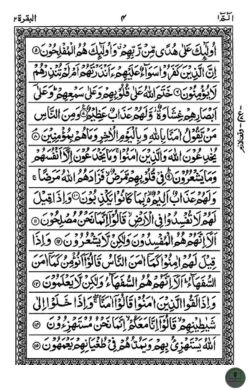 الٓمّٓ ۱ ۴ البقرة ۲
اُولٰٓئِكَ عَلٰى هُدًى مِّنْ رَّبِّهِمْ ۗ وَاُولٰٓئِكَ هُمُ الْمُفْلِحُوْنَ ۝۵
اِنَّ الَّذِيْنَ كَفَرُوْا سَوَآءٌ عَلَيْهِمْ ءَاَنْذَرْتَهُمْ اَمْ لَمْ تُنْذِرْهُمْ
لَا يُؤْمِنُوْنَ ۝۶ خَتَمَ اللّٰهُ عَلٰى قُلُوْبِهِمْ وَعَلٰى سَمْعِهِمْ ؕ وَعَلٰٓى
اَبْصَارِهِمْ غِشَاوَةٌ ۫ وَّلَهُمْ عَذَابٌ عَظِيْمٌ ۝۷ وَمِنَ النَّاسِ
مَنْ يَّقُوْلُ اٰمَنَّا بِاللّٰهِ وَبِالْيَوْمِ الْاٰخِرِ وَمَا هُمْ بِمُؤْمِنِيْنَ ۝۸
يُخٰدِعُوْنَ اللّٰهَ وَالَّذِيْنَ اٰمَنُوْا ۚ وَمَا يَخْدَعُوْنَ اِلَّآ اَنْفُسَهُمْ
وَمَا يَشْعُرُوْنَ ۝۹ فِيْ قُلُوْبِهِمْ مَّرَضٌ ۙ فَزَادَهُمُ اللّٰهُ مَرَضًا ۚ
وَلَهُمْ عَذَابٌ اَلِيْمٌۢ ۙ بِمَا كَانُوْا يَكْذِبُوْنَ ۝۱۰ وَاِذَا قِيْلَ
لَهُمْ لَا تُفْسِدُوْا فِي الْاَرْضِ ۙ قَالُوْٓا اِنَّمَا نَحْنُ مُصْلِحُوْنَ ۝۱۱
اَلَآ اِنَّهُمْ هُمُ الْمُفْسِدُوْنَ وَلٰكِنْ لَّا يَشْعُرُوْنَ ۝۱۲ وَاِذَا
قِيْلَ لَهُمْ اٰمِنُوْا كَمَآ اٰمَنَ النَّاسُ قَالُوْٓا اَنُؤْمِنُ كَمَآ اٰمَنَ
السُّفَهَآءُ ؕ اَلَآ اِنَّهُمْ هُمُ السُّفَهَآءُ وَلٰكِنْ لَّا يَعْلَمُوْنَ ۝۱۳
وَاِذَا لَقُوا الَّذِيْنَ اٰمَنُوْا قَالُوْٓا اٰمَنَّا ۚ وَاِذَا خَلَوْا اِلٰى
شَيٰطِيْنِهِمْ ۙ قَالُوْٓا اِنَّا مَعَكُمْ ۙ اِنَّمَا نَحْنُ مُسْتَهْزِءُوْنَ ۝۱۴
اَللّٰهُ يَسْتَهْزِئُ بِهِمْ وَيَمُدُّهُمْ فِيْ طُغْيَانِهِمْ يَعْمَهُوْنَ ۝۱۵